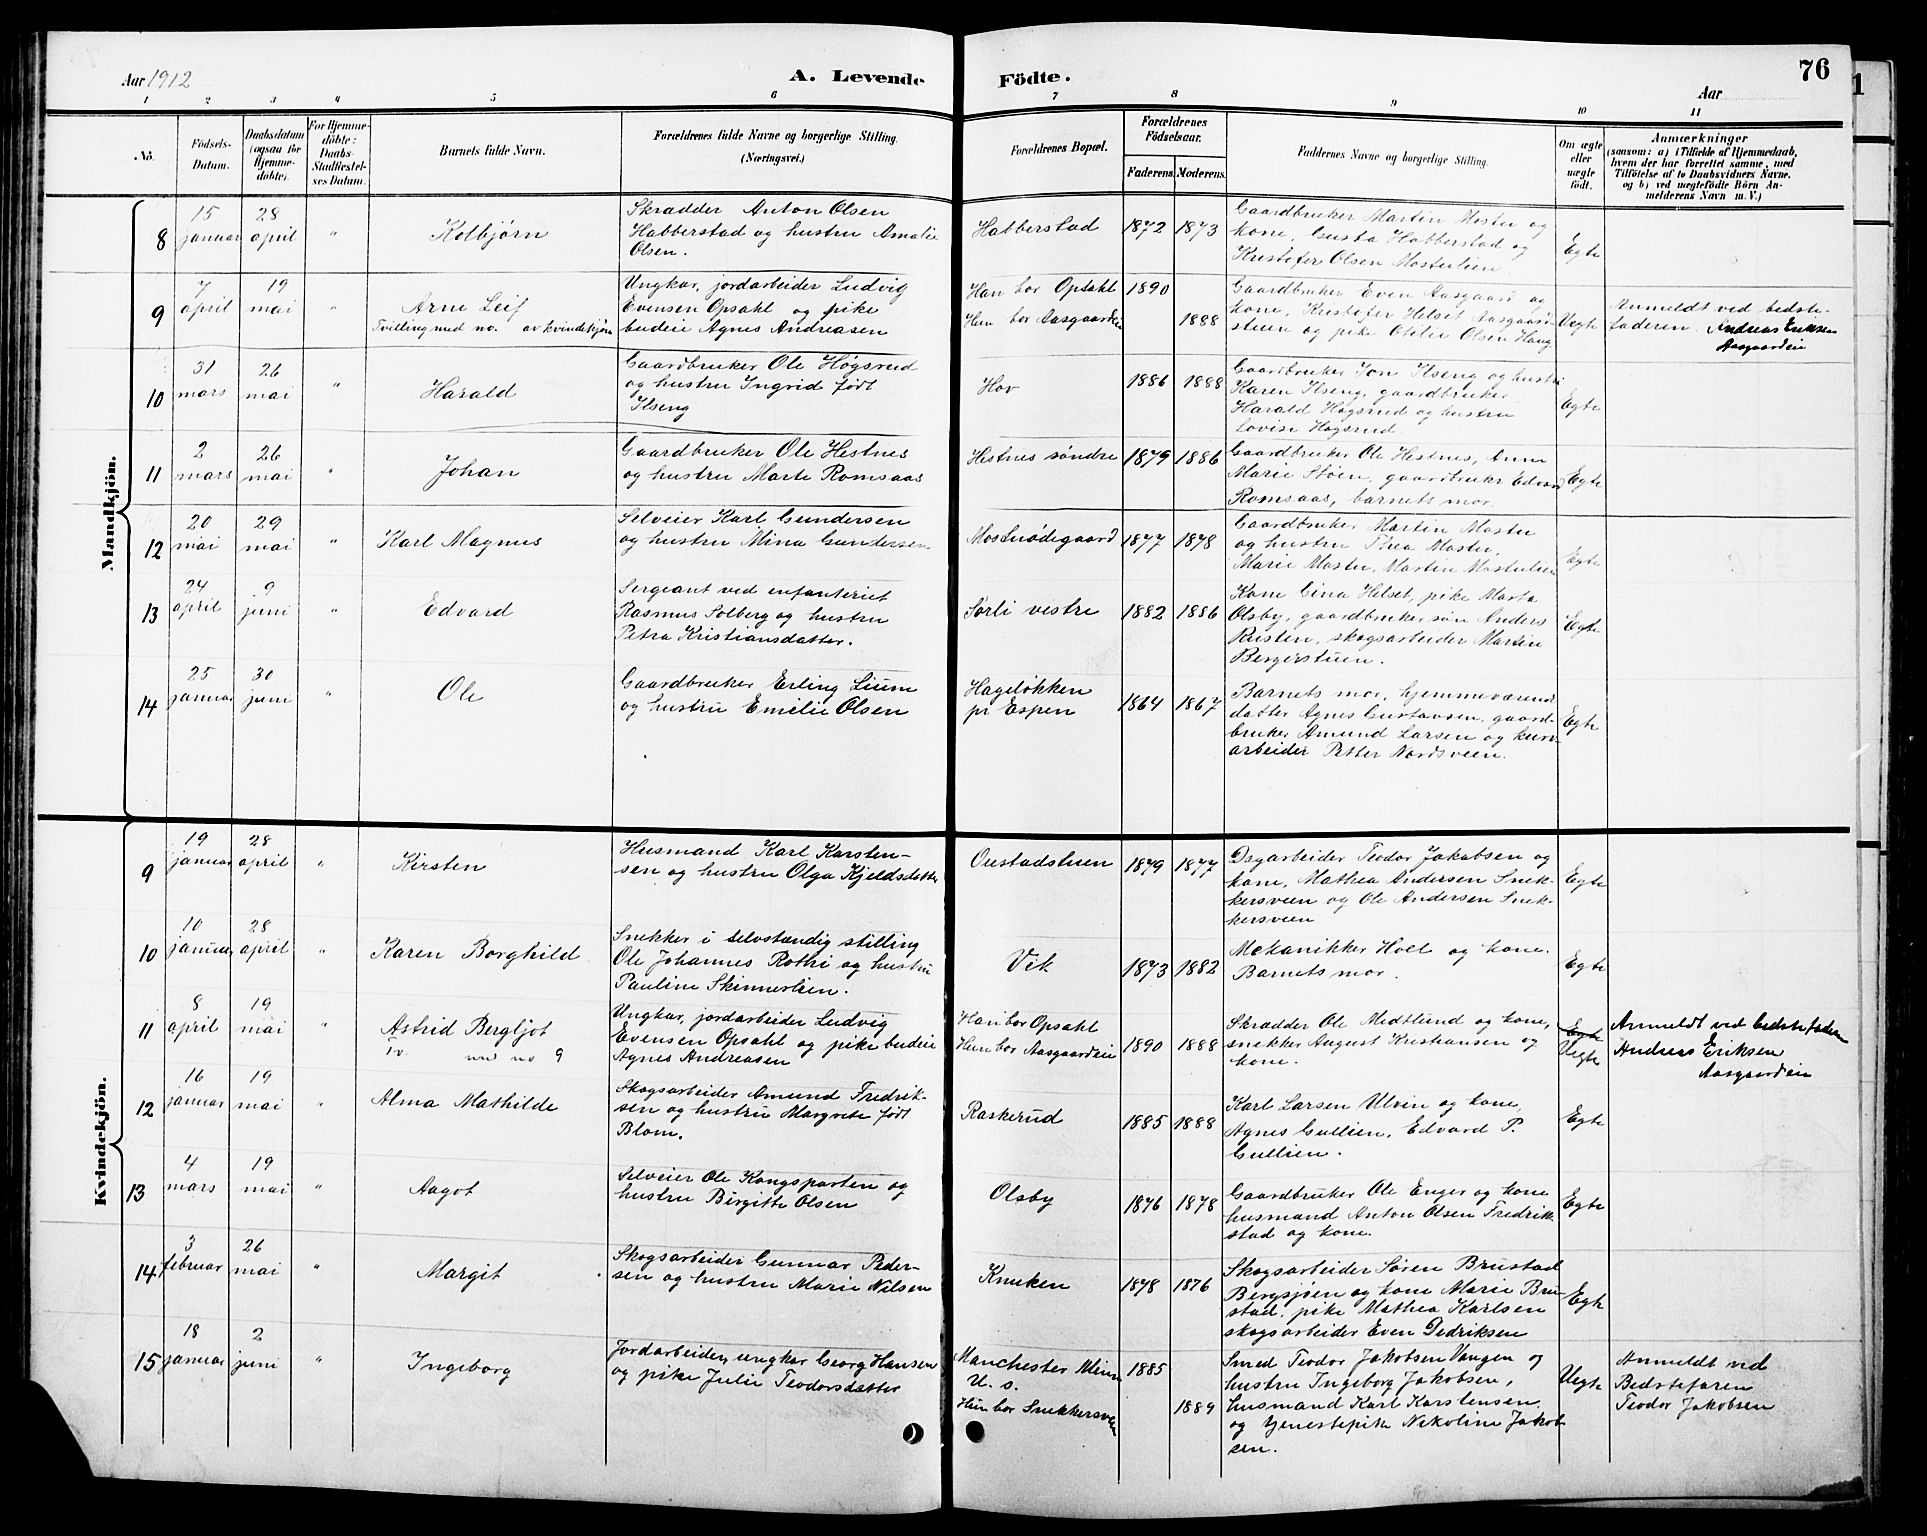 Aar 1912
A. Levende Födte.
76
Aar
1 2 3 4 5 6 7 8 9 10 11
No.
Födsels-
Datum.
Daabsdatum
(ogsaa for
Hjemme-
döbte).
For Hjemme-
döbte:
Daabs-
Stadfæstel-
ses Datum.
Barnets fulde Navn.
Forældrenes fulde Navne og borgerlige Stilling.
(Næringsvei.)
Forældrenes Bopæl.
Forældrenes
Födselsaar.
Faderens. Moderens.
Faddernes Navne og borgerlige Stilling.
Om ægte
eller
uægte
födt.
Anmærkninger
(saasom: a) i Tilfælde af Hjemmedaab,
hvem der har forrettet samme, med
Tilföielse af to Daabsvidners Navne,
og b) ved uægtefödte Börn An-
melderens Navn m. V.)
Mandkjön.
8
15
januar
28
april
"
Kolbjørn
Skrædder Anton Olsen
Habberstad og hustru Amalie
Olsen.
Habberstad
1872 1873
Gaardbruker Martin Moster og
kone, Gusta Habberstad og
Kristofer Olsen Mostulien
Egte
9
7
april
19
mai
"
Arne Leif
Tvilling med no. av kvindekjön
Ungkar, jordarbeider Ludvig
Evensen Opsahl og pike
budeie Agnes Andreasen
Han bor Opsahl
Hun bor Aasgaardeie
1890
1888
Gaardbruker Even Aasgaard og
kone, Kristofer Helset Aasgaard-
stuen og pike Otilie Olsen Haug
Uegte
Anmeldt ved bedste-
faderen. Andreas Eriksen
Aasgaardeie
10
31
mars
26
mai
"
Harald
Gaardbruker Ole Høgsrud
og hustru Ingrid født
Ilseng
Hov
1886 1888
Gaardbruker Jon Ilseng og hustru
Karen Ilseng, gaardbruker
Harald Høgsrud og hustru
Lovise Høgsrud.
Egte
11
2
mars
26
mai
"
Johan
Gaardbruker Ole Hestnes
og hustru Marte Romsaas
Hestnes søndre
1879 1886
Gaardbruker Ole Hestnes, Anne
Marie Støen, gaardbrukr Edvard
Romsaas, barnets mor.
Egte
12
20
mai
29
mai
"
Karl Magnus
Selveier Karl Gundersen
og hustru Mina Gundersen
Mostuødegaard
1877 1878
Gaardbruker Martin Moster
og hustru Thea Moster,
Marie Moster, Martin Mostulien
Egte
13
24
april
9
juni
"
Edvard
Sergeant ved infanteriet
Rasmus Solberg og hustru
Petra Kristiansdatter.
Sørli vestre
1882 1886
Kone Gina Helset, pike Marta
Olsby, gaardbruker søn Anders
Rusten, skogsarbeider Martin
Bergerstuen.
Egte
14
25
januar
30
juni
"
Ole
Gaardbruker Erling Lium
og hustru Emilie Olsen
Hageløkken
pr Espen
1864 1867
Barnets mor, hjemmeværend
datter Agnes Gustavsen, gaard-
bruker Amund Larsen og kurv-
arbeider Petter Nordsveen.
Egte
Kvindekjön.
9
19
januar
28
april
"
Kirsten
Husmand Karl Karsten-
sen og hustru Olga Kjeldsdatter
Ouestadstuen
1879 1877
Dagarbeider Teodor Jakobsen og
kone, Mathea Andersen Snek-
kersveen og Ole Andersen Snek-
kersveen
Egte
10
10
januar
28
april
"
Karen Borghild
Snekker i selvstændig stilling
Ole Johannes Rothi og hustru
Pauline Skinnerlien.
Vik
1873 1882
Mekanikker Hoel og kone.
Barnets mor.
Egte
11
8
april
19
mai
"
Astrid Bergljot
Tv. med no 9
Ungkar, jordarbeider Ludvig
Evensen Opsahl og pike budeie
Agnes Andreasen
Han bor Opsahl
Hun bor Aasgaardeie
1890 1888
Skrædder Ole Midtlund og kone,
snekker August Kristiansen og
kone.
Egte
Uegte
Anmeldt ved bedstefader
Andreas Eriksen
Aasgaardeie
12
16
januar
19
mai
"
Alma Mathilde
Skogsarbeider Amund Fredrik-
sen og hustru Margrete født
Blom.
Raskerud
1885 1888
Karl Larsen Ulvin og kone,
Agnes Gullien, Edvard P.
Gullien.
Egte
13
4
mars
19
mai
"
Aagot
Selveier Ole Kongsparten og
hustru Birgitte Olsen
Olsby
1876 1878
Gaardbruker Ole Enger og kone
husmand Anton Olsen Fredrik-
stad og kone.
Egte
14
3
februar
26
mai
"
Margit
Skogsarbeider Gunnar Peder-
sen og hustru Marie Nilsen
Knuken
1878 1876
Skogsarbeider Søren Brustad
Bergsjøen og kone Marie Bru-
stad, pike Mathea Karlsen
skogsarbeider Even Didriksen
Egte
15
18
januar
2
juni
"
Ingeborg
Jordarbeider, ungkar Georg Hansen
og pike Julie Teodorsdatter
Manchester Minn
U. s.
Hun bor Snekkersveen
1885
1889
Smed Teodor Jakobsen Vangen og
hustru Ingeborg Jakobsen,
husmand Karl Karstensen
og tjenestepike Nikoline Jakob-
sen.
Uegte
Anmeldt ved
Bedstefaren
Teodor Jakobsen